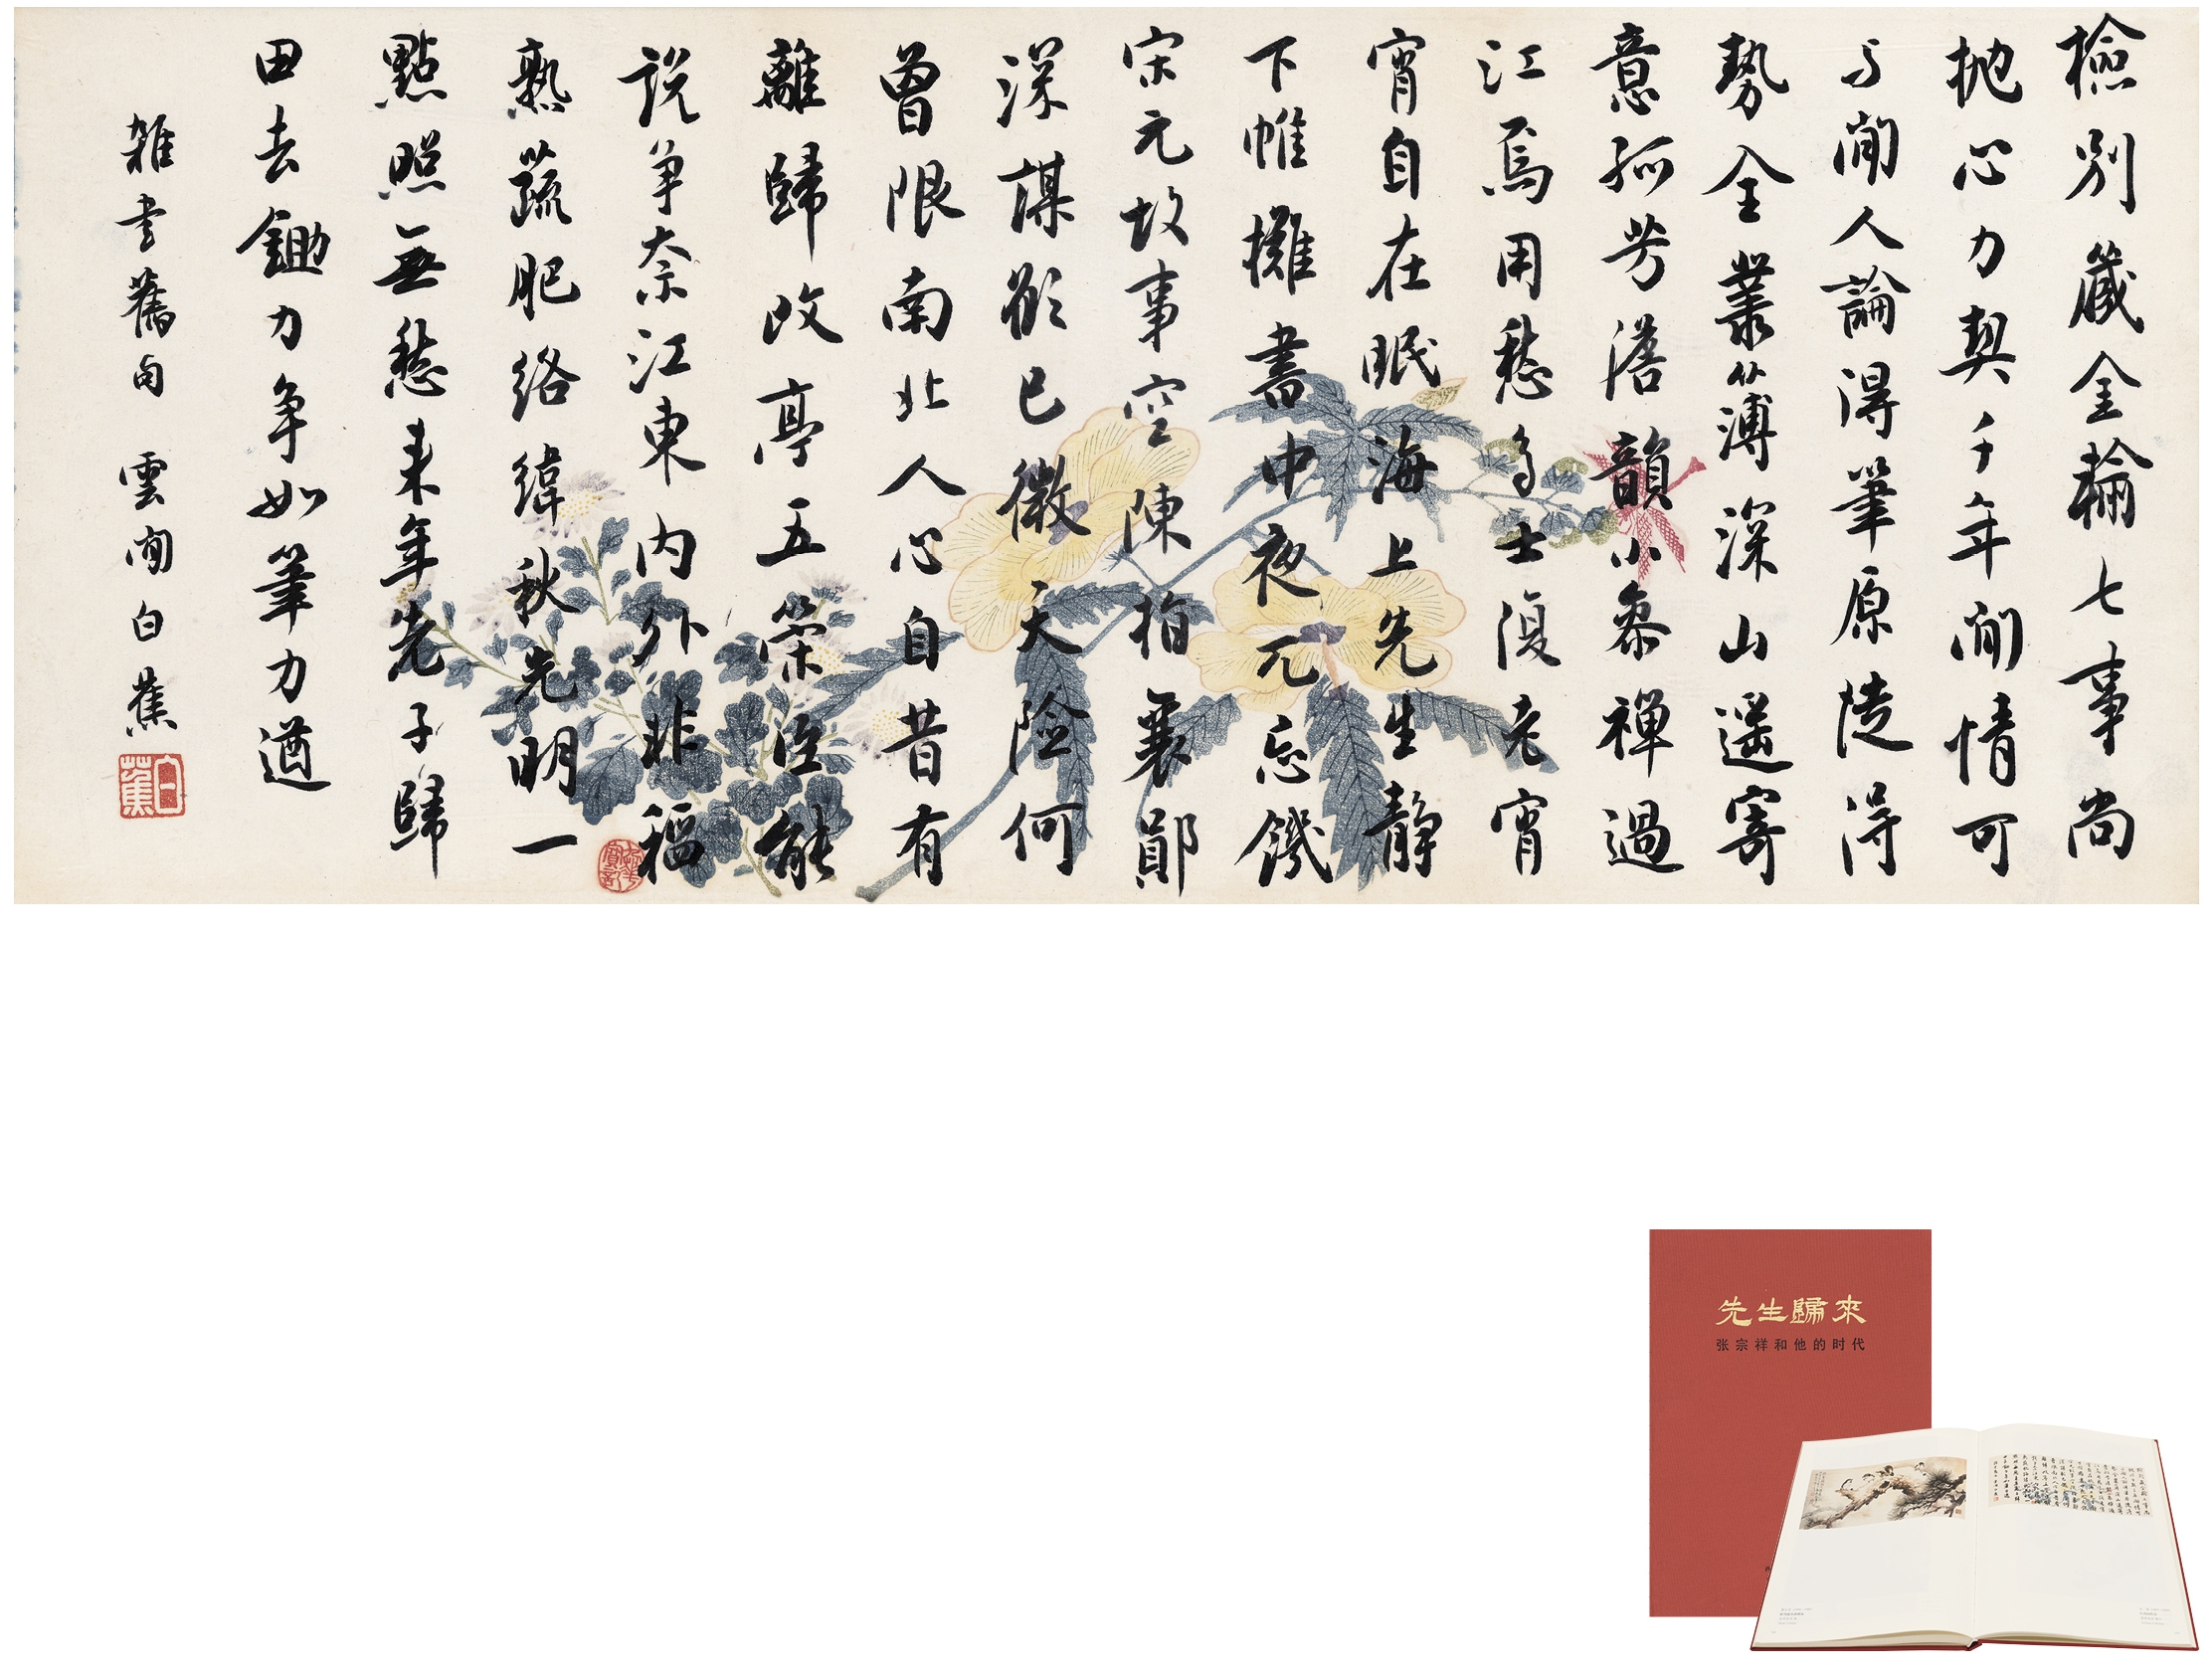 檢別箴金輪七事尚
拋心力契千年閒情可
与閒人論得筆原從得
勢全叢叢薄深山遥寄
意孤芳澹韻小參禪過
江焉用愁多士復老宵
宵自在眠海上先生静
下帷攤書中夜兀忘饑
宋元故事空陳指襄鄖
深謀欲已徵天險何
曾限南北人心自昔有
離歸改亭五策誰能
説争奈江東内外非稻
熟蔬肥絡緯秋先明一
點照無愁来年先子歸
田去鋤力争如筆力遒
雜書舊句 雲間白蕉
白蕉
先生歸來
张宗祥和他的时代